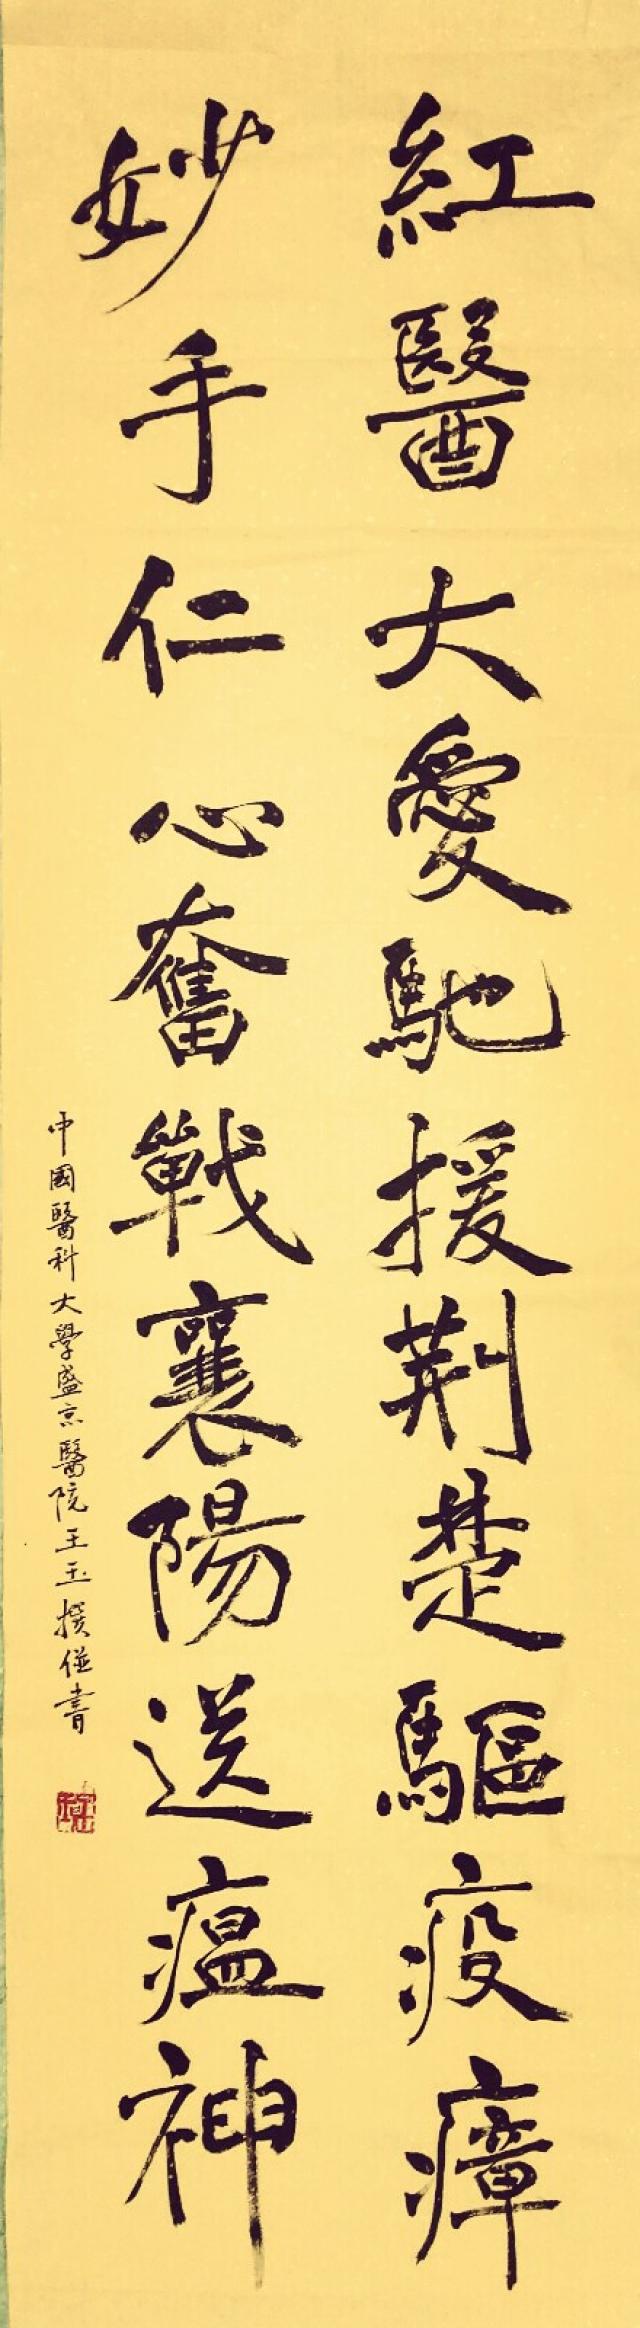 紅醫大愛馳援荆楚驅疫瘴
妙手仁心奮戰襄陽送瘟神
中國醫科大學盛京醫院王玉撰並書